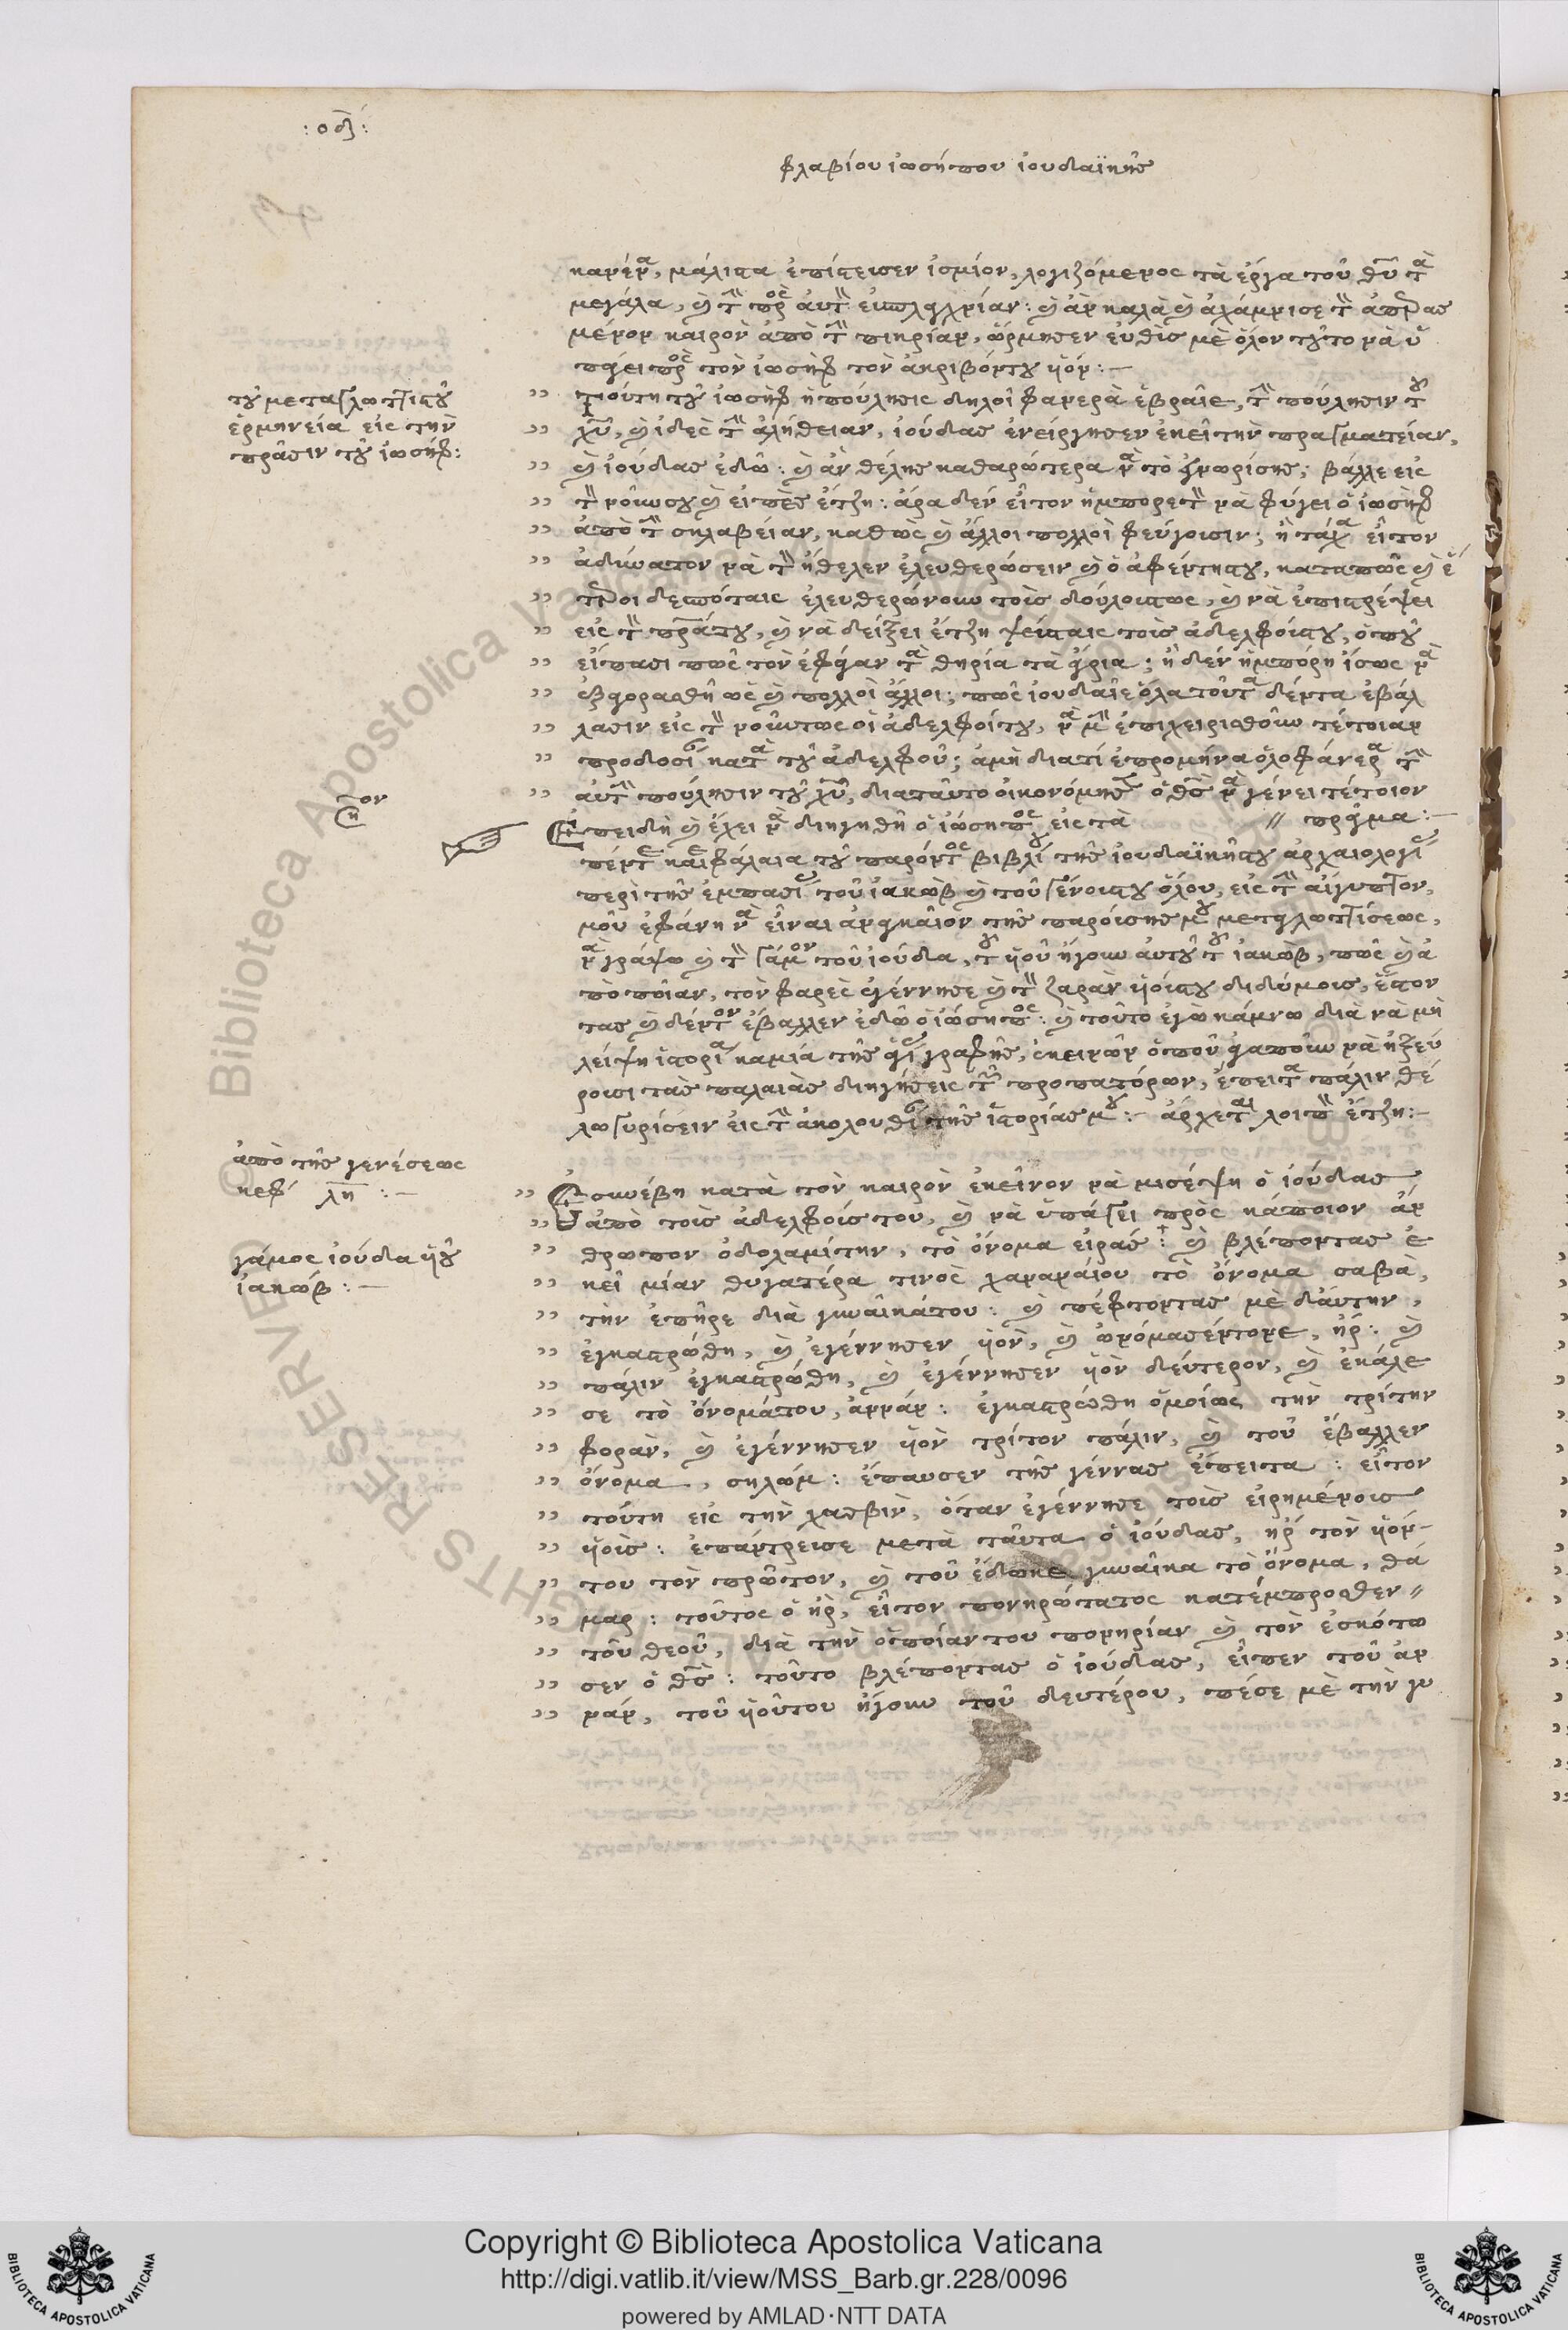 : οδ :
φλαβίου ἰωσήπου ἰουδαϊκῆς
μεγάλα, καὶ τὴν πρὸς αὐτὴν
μένον καιρὸν ἀπὸ τὴν πικρίαν, ὥρμησεν εὐθὺς μὲ ὅλον τοῦτο νὰ ὑ
πάγει πρὸς τὸν ἰωσὴφ τὸν ἀκριβόντου υἱόν :
τοῦ μεταγλωττιστοῦ
ἑρμηνεία εἰς τὴν
πρᾶσιν τοῦ ἰωσήφ :
τούτη τοῦ ἰωσὴφ ἡ πούλησις δηλοῖ φανερὰ ἑβραῖε, τὴν πούλησιν τοῦ
χυ, καὶ ἰδὲς τὴν ἀλήθειαν, ἰούδας ἐνείργησεν ἐκεῖ τὴν πραγματείαν,
καὶ ἰούδας ἐδῶ : καὶ ἂν θέλης καθαρώτερα νὰ τὸ γνωρίσης, βάλλε εἰς
τὸν νοῦν σου καὶ εἰπὲς ἔτζη : ἆρα δὲν εἶτον ἠμπορετὸν νὰ φύγει ὁ ἰωσὴφ
ἀπὸ τὴν σκλαβείαν, καθὼς καὶ ἄλλοι πολλοὶ φεύγουσιν ; ἢ τάχα εἶτον
ἀδύνατον νὰ τὸν ἤθελεν ἐλευθερώσειν καὶ ὁ ἀφέντης του, καταπῶς καὶ ἕ
τεροι δεσπόταις ἐλευθερώνουν τοὺς δούλους τως, καὶ νὰ ἐπιστρέψει
εἰς τὸν πρα του, καὶ νὰ δείξει ἔτζη ψεύσταις τοὺς ἀδελφούς του, ὁποῦ
εἴπασι πῶς τὸν ἐφάγαν τὰ θηρία τὰ ἄγρια ; ἢ δὲν ἠμπόρη ἴσως νὰ
ἐξαγορασθῆ ὡς καὶ πολλοὶ ἄλλοι ; πῶς ἰουδαῖε ὅλα τοῦτα δέντα ἐβάλ
λασιν εἰς τὸν νοῦν τως οἱ ἀδελφοί του, νὰ μὴν ἐπιχειρισθοῦν τέτοιαν
προδοσίαν κατὰ τοῦ ἀδελφοῦ ; ἀμὴ διατί ἐπρομήνα ὁλοφάνερα τὴν
αὐτὴν πούλησιν τοῦ χυ, διαταῦτο οἰκονόμησεν ὁ θς νὰ γένει τέτοιον
// πρᾶγμα :
Ἐπειδὴ καὶ ἔχει νὰ διηγηθῆ ὁ ἰώσηπος εἰς τὰ
πέντε κεφάλαια τοῦ παρόντος βιβλίου τῆς ἰουδαϊκῆς του ἀρχαιολογίας
περὶ τῆς ἐμπασίας τοῦ ἰακὼβ καὶ τοῦ γένους του ὅλου, εἰς τὴν αἴγυπτον,
μοῦ ἐφάνη νὰ εἶναι ἀναγκαῖον τῆς παρούσης μου μεταγλωττίσεως,
νὰ γράψω καὶ τὸν γάμον τοῦ ἰούδα, τοῦ υἱοῦ ἤγουν αὐτοῦ τοῦ ἰακὼβ, πῶς καὶ ἀ
πὸ ποῖαν, τὸν φαρὲς ἐγέννησε καὶ τὸν ζαρὰν υἱούς του διδύμους, ἔστον
τας καὶ δέντον ἔβαλλεν ἐδῶ ὁ ἰώσηπος : καὶ τοῦτο ἐγὼ κάμνω διὰ νὰ μὴ
λείψη ἱστορία καμία τῆς ἁγίας γραφῆς, ἐκεινῶν ὁποῦ ἀγαποῦν νὰ ἠξεύ
ρουσι τὰς παλαιὰς διηγήσεις τῶν προπατόρων, ἔπειτα πάλιν θέ
λω γυρίσειν εἰς τὴν ἀκολουθίαν τῆς ἱστορίας μου : ἄρχεται λοιπὸν ἔτζη :
ἀπὸ τῆς γενέσεως
κεφ λη :
Ἐσυνέβη κατὰ τὸν καιρὸν ἐκεῖνον νὰ μισέψη ὁ ἰούδας
ἀπὸ τοὺς ἀδελφούς του, καὶ νὰ ὑπάγει πρὸς κάποιον ἄν
γάμος ἰούδα υἱοῦ
ἰακώβ :
θρωπον ὀδολαμίτην, τὸ ὄνομα εἰράς : καὶ βλέποντας ἐ
κεῖ μίαν θυγατέρα τινὸς χαναναίου τὸ ὄνομα σαβὰ,
τὴν ἐπῆρε διὰ γυναῖκάτου : καὶ πέφτοντας μὲ δαύτην,
ἐγκαστρώθη, καὶ ἐγέννησεν υἱὸν, καὶ ὠνόμασέντονε, ἤρ : καὶ
πάλιν ἐγκαστρώθη, καὶ ἐγέννησεν υἱὸν δεύτερον, καὶ ἐκάλε
σε τὸ ὄνομάτου, ἀννάν : ἐγκαστρώθη ὁμοίως τὴν τρίτην
φορὰν, καὶ ἐγέννησεν υἱὸν τρίτον πάλιν, καὶ τοῦ ἔβαλλεν
ὄνομα, σηλώμ : ἔπαυσεν τῆς γέννας ἔπειτα : εἶτον
τούτη εἰς τὴν χασβὶν, ὅταν ἐγέννησε τοὺς εἰρημένους
υἱούς : ἐπάντρεισε μετὰ ταῦτα ὁ ἰούδας, ἤρ τὸν υἱόν
του τὸν πρῶτον, καὶ τοῦ ἔδωκε γυναῖκα τὸ ὄνομα, θά
μαρ : τοῦτος ὁ ἤρ, εἶτον πονηρώτατος κατέμπροσθεν
τοῦ θεοῦ, διὰ τὴν ὁποίαν του πονηρίαν καὶ τὸν ἐσκότω
σεν ὁ θς : τοῦτο βλέποντας ὁ ἰούδας, εἶπεν τοῦ ἀν
νάν, τοῦ υἱοῦτου ἤγουν τοῦ δευτέρου, πέσε μὲ τὴν γυ
© Biblioteca Apostolica Vaticana
Copyright © Biblioteca Apostolica Vaticana
http://digi.vatlib.it/view/MSS_Barb.gr.228/0096
powered by AMLAD·NTT DATA
BIBLIOTECA APOSTOLICA VATICANA
BIBLIOTECA APOSTOLICA VATICANA